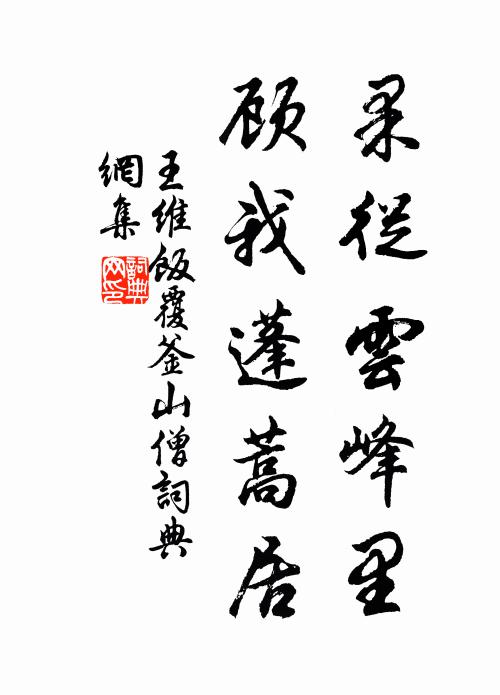 果從雲峰里
顧我蓬蒿居
王維飯覆釜山僧詞典
網集
詞典
网印